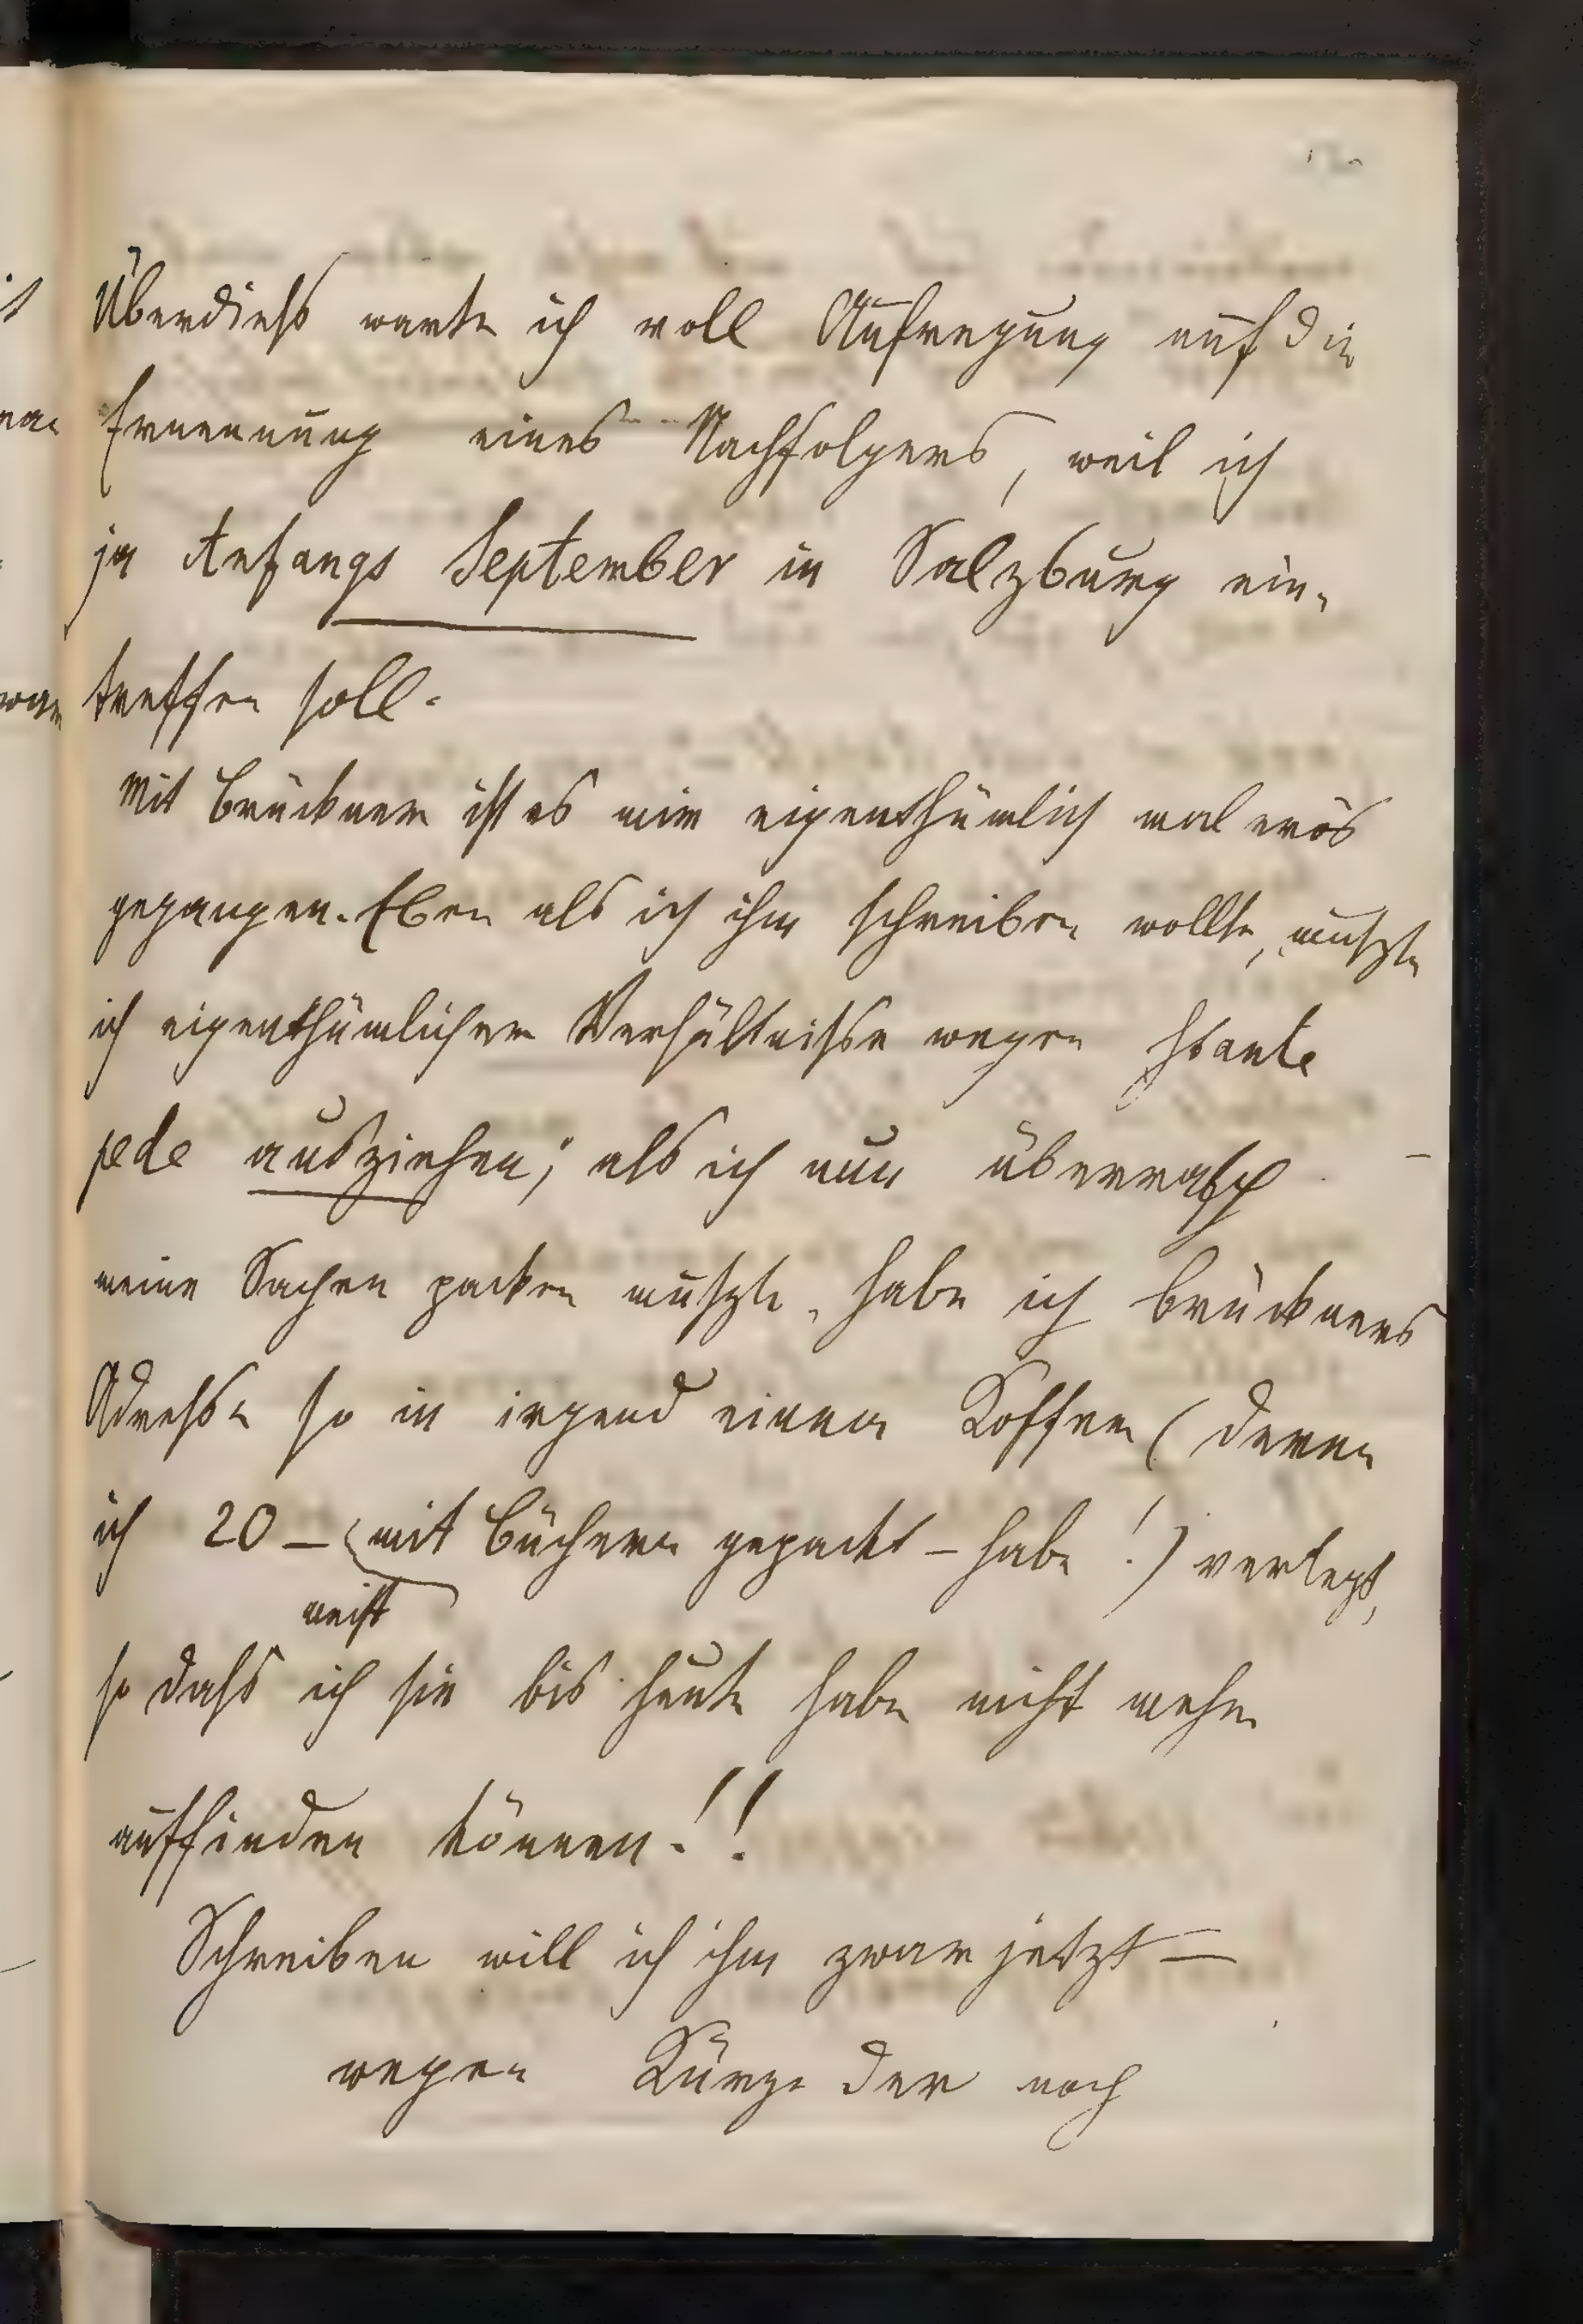 Überdieß warte ich voll Aufregung auf die
Ernennung eines Nachfolgers, weil ich
ja Anfangs September in Salzburg ein-
treffen soll.
Mit Brückner ist es mir eigenthümlich malerös
gegangen. Eben als ich ihm schreiben wollte, mußte
ich eigenthümlicher Verhältnisse wegen stante
pede ausziehen; als ich nun überrasch
meine Sachen packen mußte, habe ich Brückners
Adresse so in irgend einen Koffer (deren
ich 20 – mit Büchern gepackt – habe!) verlegt,
meist
so daß ich sie bis heute habe nicht mehr
auffinden können!!
Schreiben will ich ihm zwar jetzt –
wegen Kürze der noch